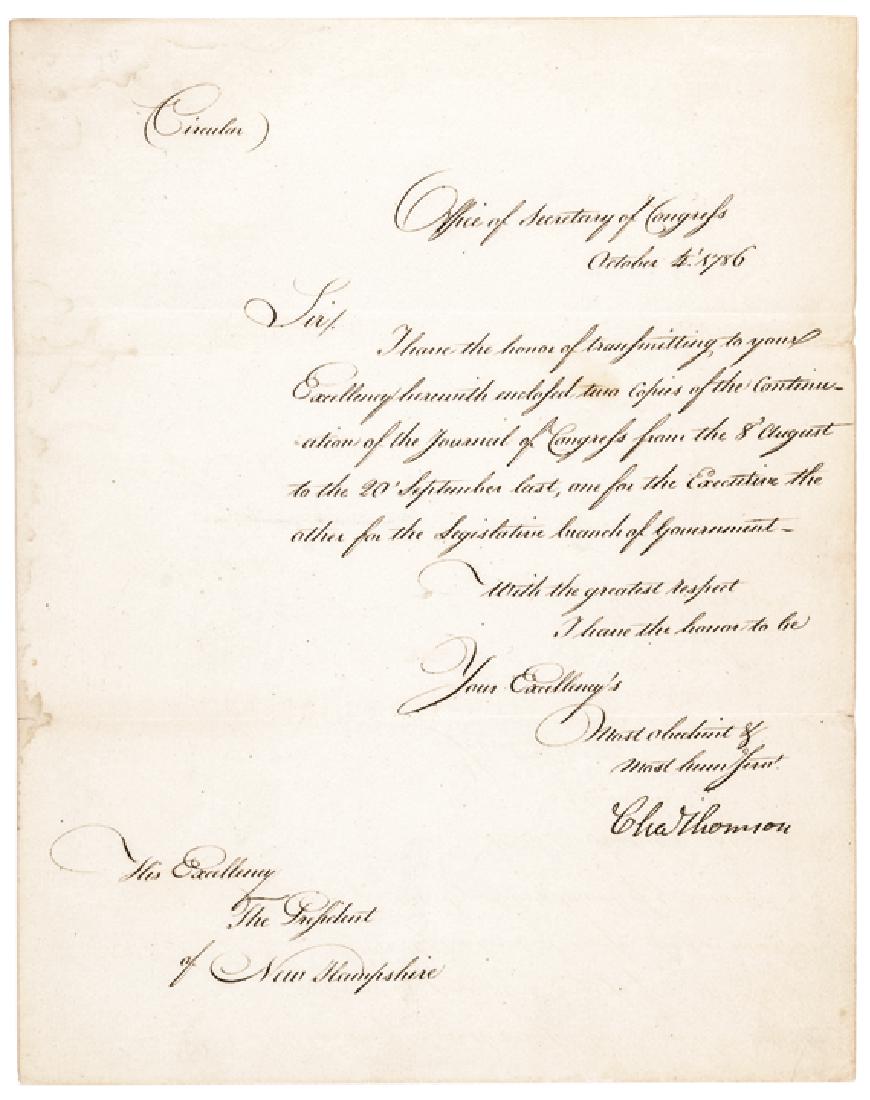 (Circular)
Office of Secretary of Congress
October 4.' 1786
Sir/.
I have the honor of transmitting to your
Excellency herewith enclosed two Copies of the Continu-
ation of the Journal of Congress from the 8' August
to the 20' September last, one for the Executive the
other for the Legislative branch of Government -
With the greatest respect
I have the honor to be
Your Excellency's
Most obedient &
Most hum Servt.
Cha Thomson
His Excellency
The President
of New Hampshire